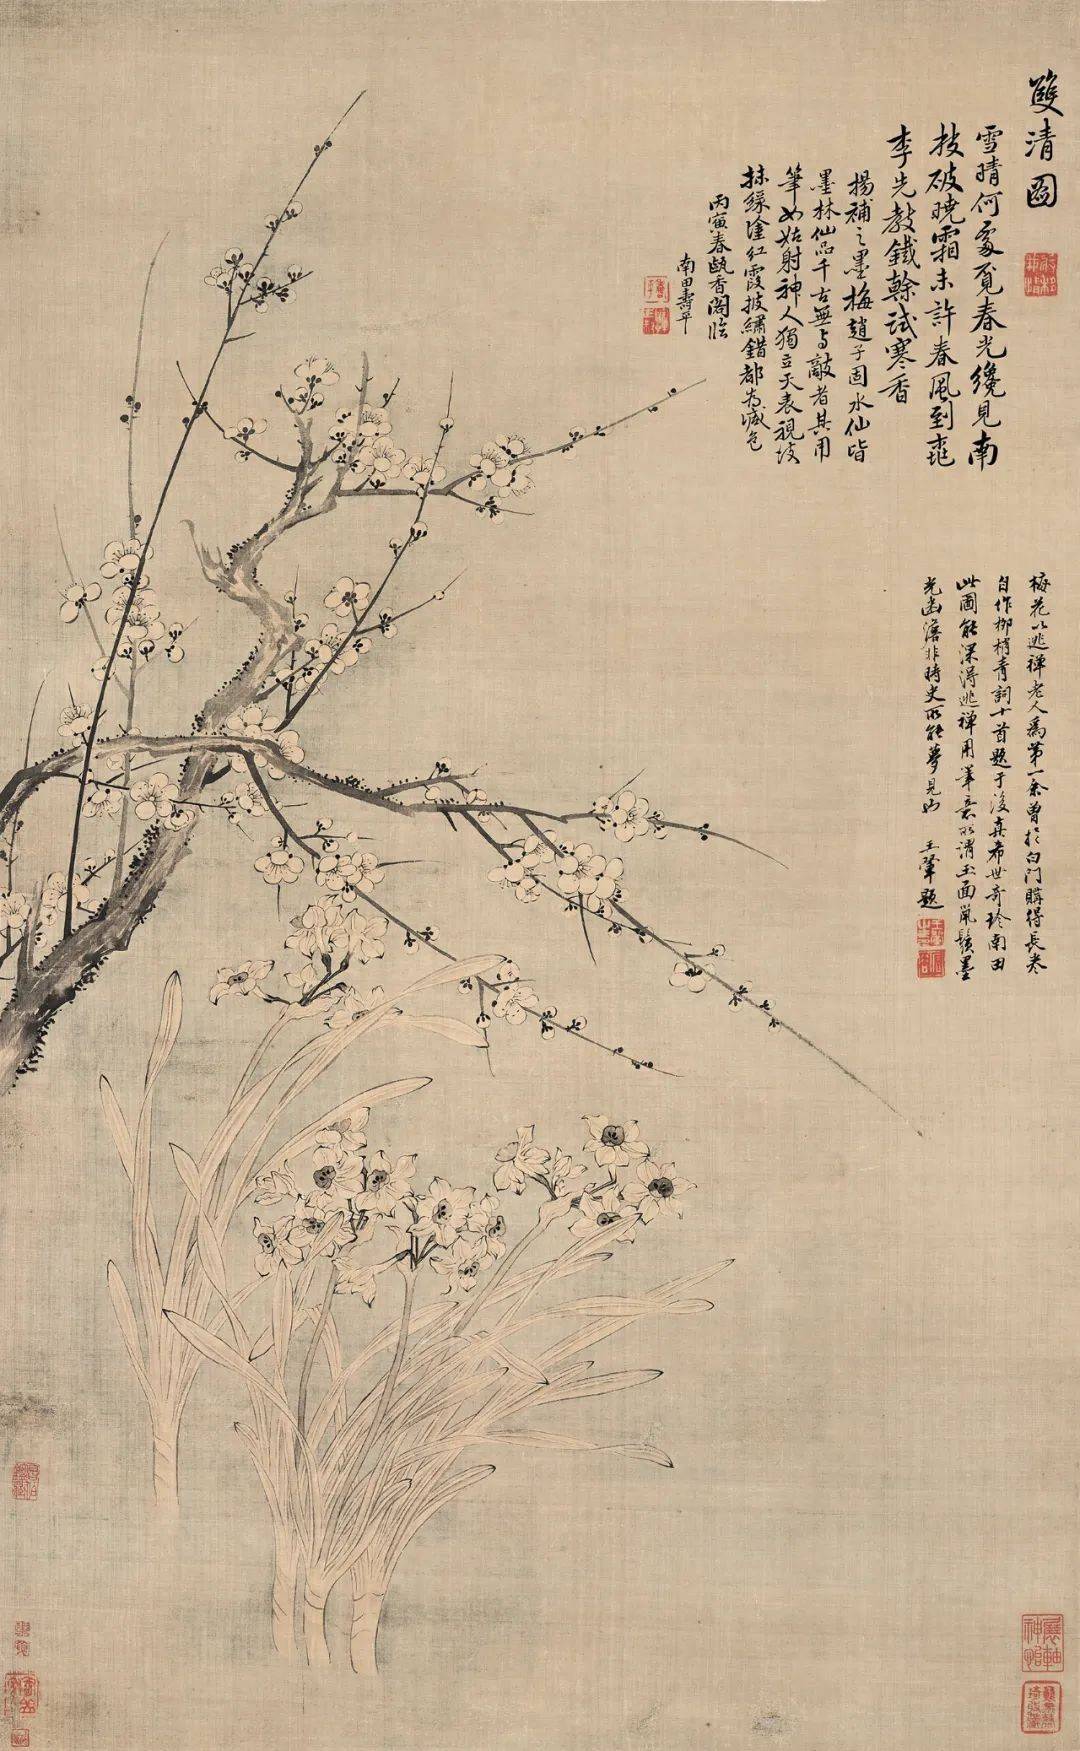 雙清圖
雪晴何處覓春光纔見南
枝破曉霜未許春風到桃
李先教鐵榦試寒香
揚補之墨梅趙子固水仙皆
墨林仙品千古無與敵者其用
筆如姑射神人獨立天表視彼
抹綠塗紅霞披繡錯都為減色
丙寅春甌香閣臨
南田壽平
梅花以逃禪老人爲第一余曾於白門購得長卷
自作柳梢青詞十首題于後真希世奇珍南田
此圖能深得逃禪用筆意所謂玉面鼠鬚墨
光幽澹非時史所能夢見也 王翬題